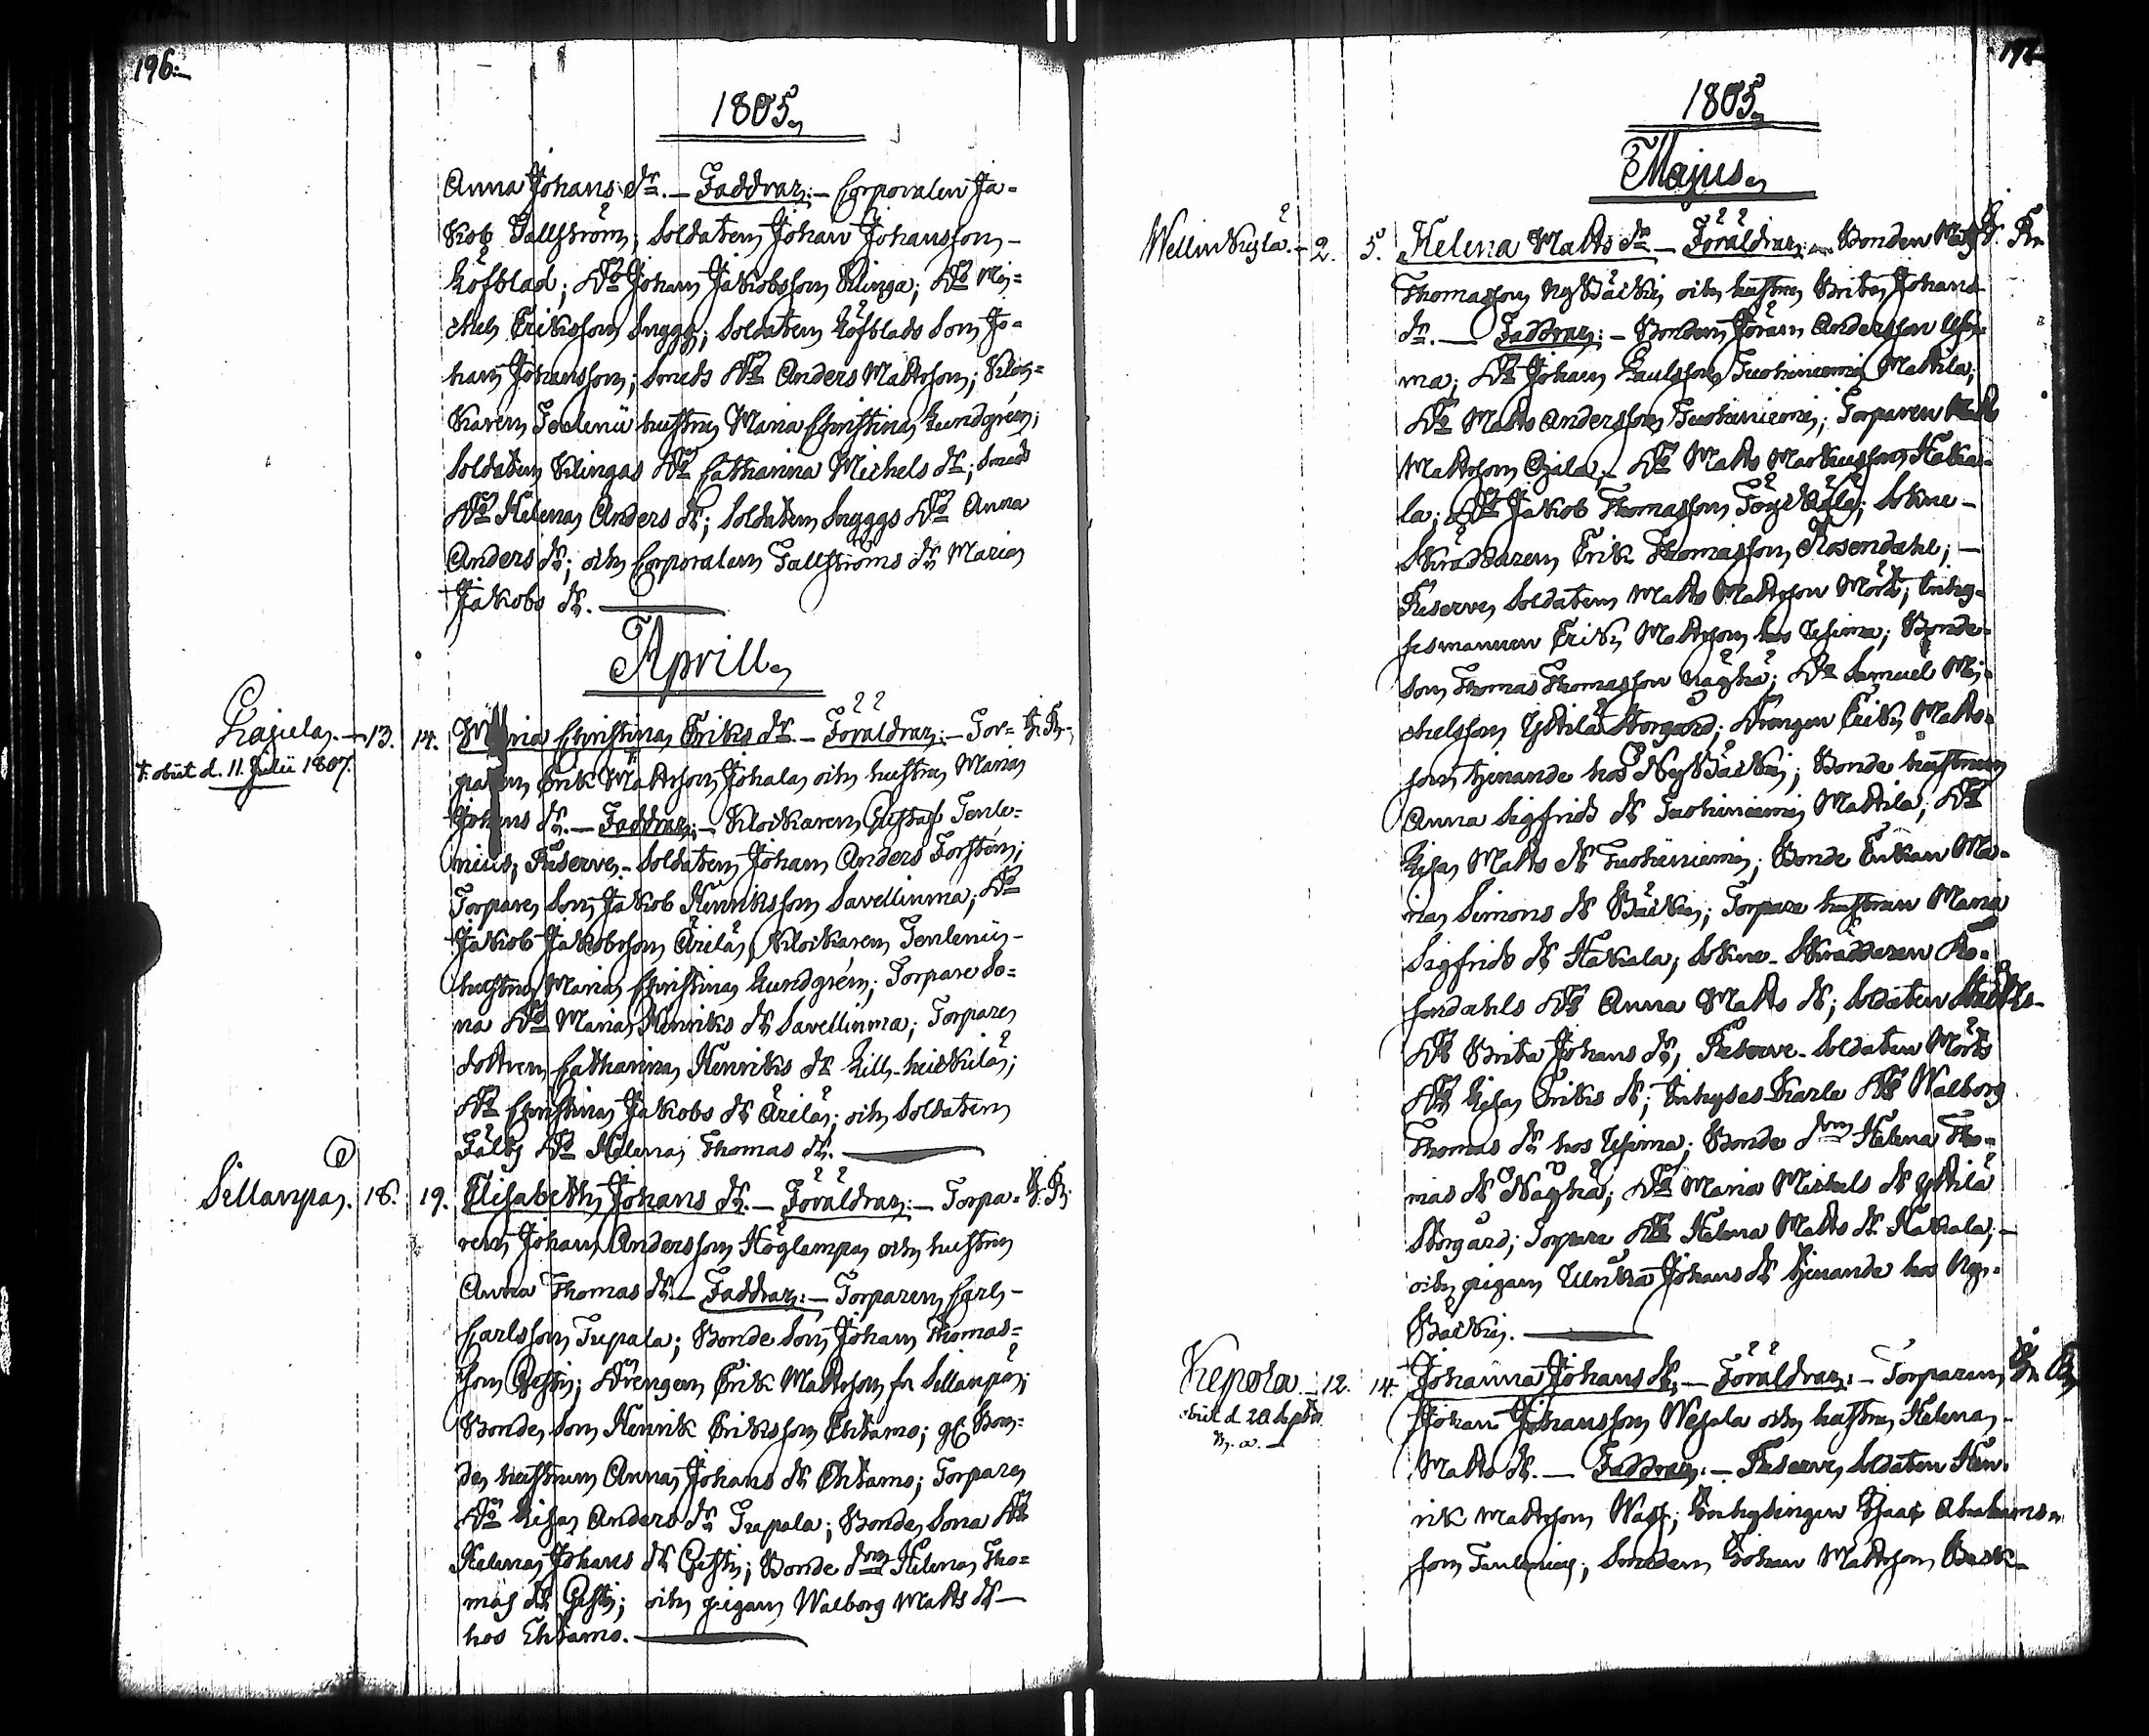 196.
1805.
Anna Johans dr. — Faddrar: — Corporalen Ja=
kob Fallström; Soldaten Johan Johansson
Löfblad; Do Johan Jakobsson Klinga; Do Mi=
chel Eriksson Snygg; Soldaten Löfblads Son Jo=
han Johansson; Smeds Do Anders Mattsson; Kloc=
karen Tenlenii hustru Maria Christina Lundgrén;
Soldaten Klingas Do Catharina Michels dr; Smeds
Do Helena Anders dr; Soldaten Snyggs Do Anna
Anders dr; och Corporalen Fallströms dr Maria
Jakobs dr.
Aprill
Lajula. — 13. 14. Maria Christina Eriks dr. — Föräldrar: — Tor=
t. obiit d. 11 Julii 1807.
paren Erik Mattsson Johala och hustru Maria
Johans dr. — Faddrar: — Klockaren Gustaf Tenle=
nius; Reserve-Soldaten Johan Anders Forstén;
Torpare Son Jakob Henriksson Savellinma; Do
Jakob Jakobsson Ärilä; Klockaren Tenlenii
hustru Maria Christina Lundgrén; Torpare So=
na Do Maria Henriks dr Savellinma; Torpare
dottren Catharina Henriks dr Lill-heickilä;
Do Christina Jakobs dr Ärilä; och Soldaten
Fälts Do Helena Thomas dr.
Sillanpä. 18. 19. Elisabeth Johans dr. — Föräldrar: — Torpa=
ren Johan Andersson Höglampa och hustru
Anna Thomas dr. — Faddrar: — Torparen Carl
Carlsson Tupala; Bonde Son Johan Thomas=
son Gesti; Drengen Erik Mattsson fr Sillanpä;
Bonde Son Henrik Eriksson Ehtamo; gl Bon=
de hustrun Anna Johans dr Ehtamo; Torpare
Do Lisa Anders dr Tupala; Bonde Sona Do
Helena Johans dr Gesti; Bonde drn Helena Tho=
mas dr Gesti; och pigan Walborg Matts dr
hos Ehtamo.
1805.
Majus
2. 5. Helena Matts dr — Föräldrar: — Bonden
Thomasson NyBäcki och hustru Brita Johans
dr. — Faddrar: — Bonden Göran Andersson
Do Johan Paulsson Tuohiniemi Mattila;
Do Matts Andersson Tuohiniemi; Torparen
Mattsson Ojala; Do Matts Markusson Haka=
la; Do Jakob Thomasson; Sokne-
Skräddaren Erik Thomasson Rosendahl;
Reserve Soldaten Matts Mattsson Mört; Inhy=
sesmannen Erik Mattsson hos; Bonde
Son Thomas Thomasson Näyhä; Do Samuel Mi=
chelsson Yttilä Storgård; Drengen Erik Matts=
son tjenande hos NyBäcki; Bonde hustrun
Anna Sigfrids dr Tuohiniemi Mattila; Do
Lisa Matts dr Tuohiniemi; Bonde Enkan Ma=
ria Simons dr Bäcki; Torpare hustrun Maria
Sigfrids dr Hakala; Sokne-Skräddaren Ro=
sendahls Do Anna Matts dr; Soldaten
Do Brita Johans dr; Reserve-Soldaten Mörts
Do Lisa Eriks dr; Inhyses Karla Do Walborg
Thomas dr hos; Bonde drn Helena Tho=
mas dr Näyhä; Do Maria Michels dr Yttilä
Storgård; Torpare Do Helena Matts dr Hakala;
och pigan Ulrika Johans dr tjenande hos Ny=
Bäcki.
Kepola. 12. 14. Johanna Johans dr. — Föräldrar: — Torparen
obiit d. 20 Septbr
h. a.
Johan Johansson Wesala och hustru Helena
Matts dr. — Faddrar: — Reserve Soldaten Hen=
rik Mattsson Wass; Inhysingen Isaac Abrahams=
son; Smeden Johan Mattsson